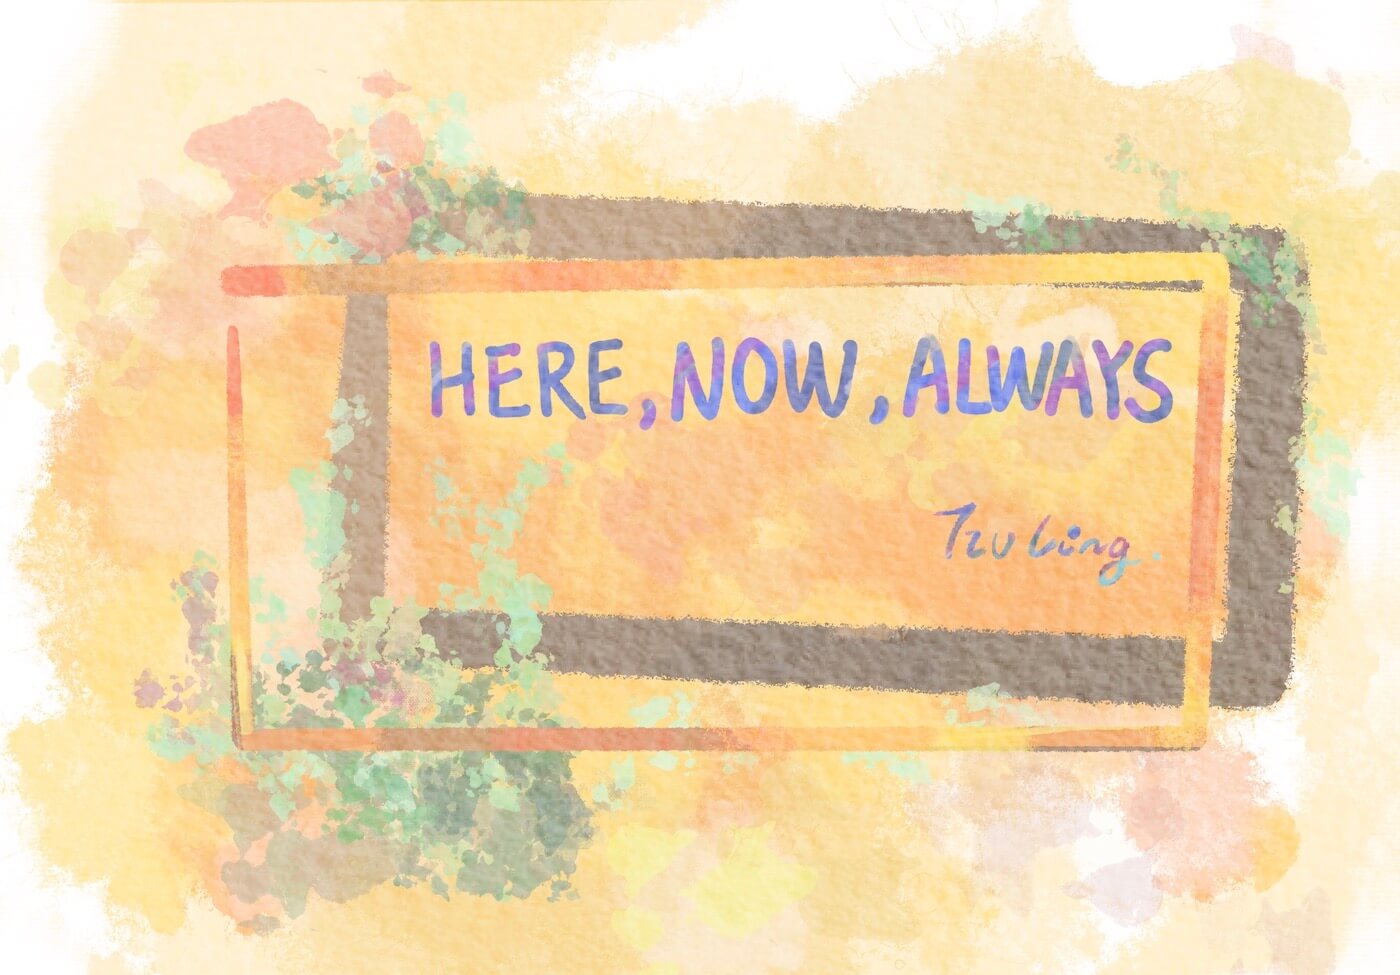 HERE, NOW, ALWAYS
Tzu Ling.